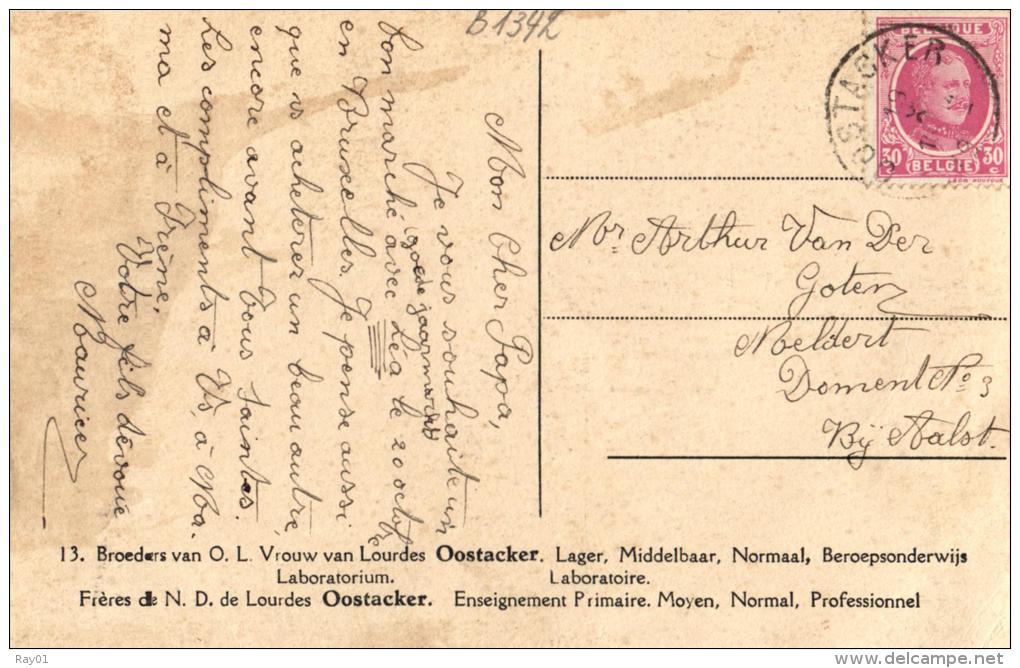 B1342
Mon Cher Papa,
Je vous souhaite un
goede jaarmarkt
bon marché avec Léa le 20 octobre
en Bruxelles. Je pense aussi
que vs acheterer un beau autre,
encore avant Tous Saintes.
Les compliments à Vs, à Ma
ma et à Irène.
Votre fils dévoué
Maurice
OOSTACKER
BELGIQUE
30 BELGIE 30
c c
Mr. Arthur Van Der
Goten
Meldert
Doment No 3
Bij Aalst.
13. Broeders van O. L. Vrouw van Lourdes Oostacker. Lager, Middelbaar, Normaal, Beroepsonderwijs
Laboratorium. Laboratoire.
Frères de N. D. de Lourdes Oostacker. Enseignement Primaire. Moyen, Normal, Professionnel
Ray01
delcampe.net